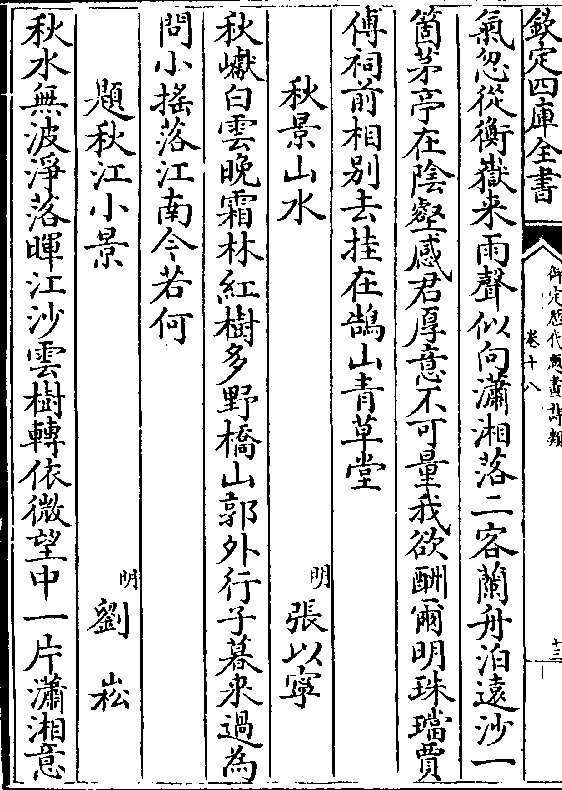 欽定四庫全書
御定歷代題畫詩類
卷十八
十三
氣忽從衡嶽来雨聲似向瀟湘落二客蘭舟泊遠沙一
箇茅亭在陰壑感君厚意不可量我欲酬爾明珠璫賈
傅祠前相别去挂在鵠山青草堂
秋景山水
明 張以寧
秋巘白雲晚霜林紅樹多野橋山郭外行子暮来過為
問小搖落江南今若何
題秋江小景
明 劉崧
秋水無波淨落暉江沙雲樹轉依微望中一片瀟湘意